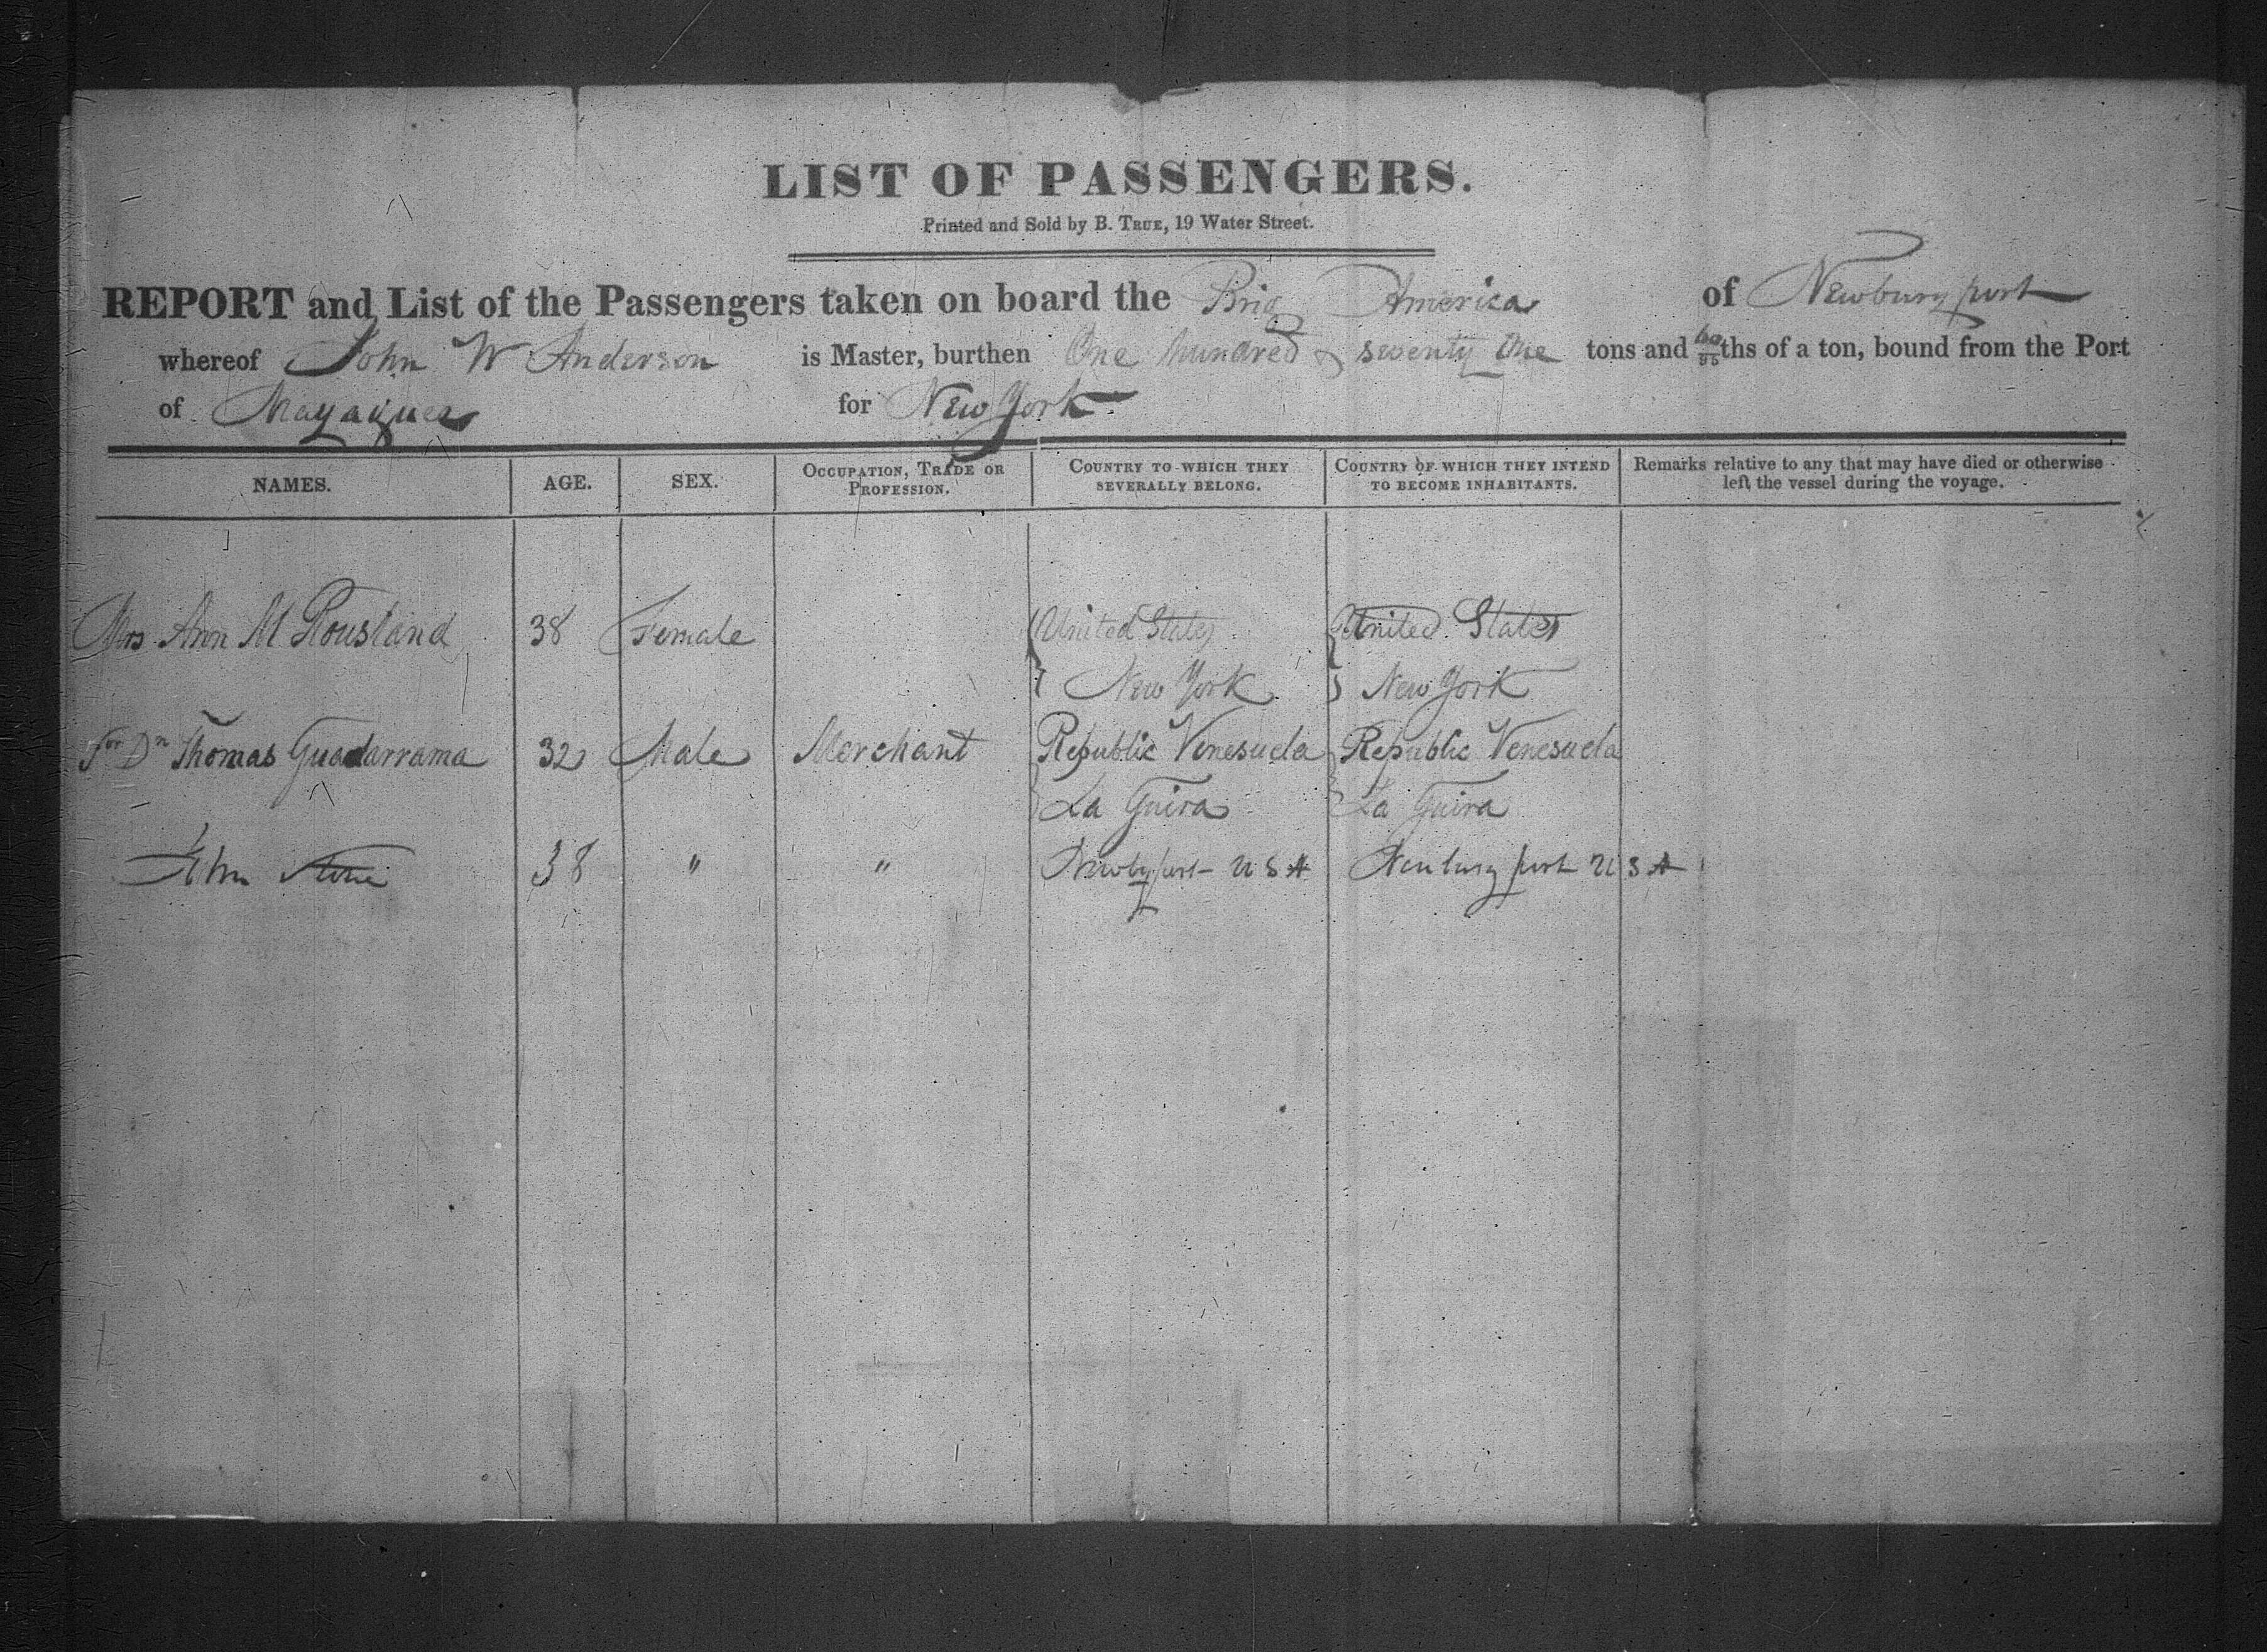 LIST OF PASSENGERS.
Printed and Sold by B. TRUE, 19 Water Street.
REPORT and List of the Passengers taken on board the Brig America of Newburyport
whereof John W Anderson is Master, burthen One hundred & seventy One tons and 60/95ths of a ton, bound from the Port
of Mayaguez for New York
NAMES. AGE. SEX. OCCUPATION, TRADE OR PROFESSION. COUNTRY TO WHICH THEY SEVERALLY BELONG. COUNTRY OF WHICH THEY INTEND TO BECOME INHABITANTS. Remarks relative to any that may have died or otherwise left the vessel during the voyage.
Mrs Ann M Rousland 38 Female United States United States
New York New York
Sor Dn Thomas Guadarrama 32 Male Merchant Republic Venesuela Republic Venesuela
La Guira La Guira
John 38 " " Newbyport U S A Newburyport U S A